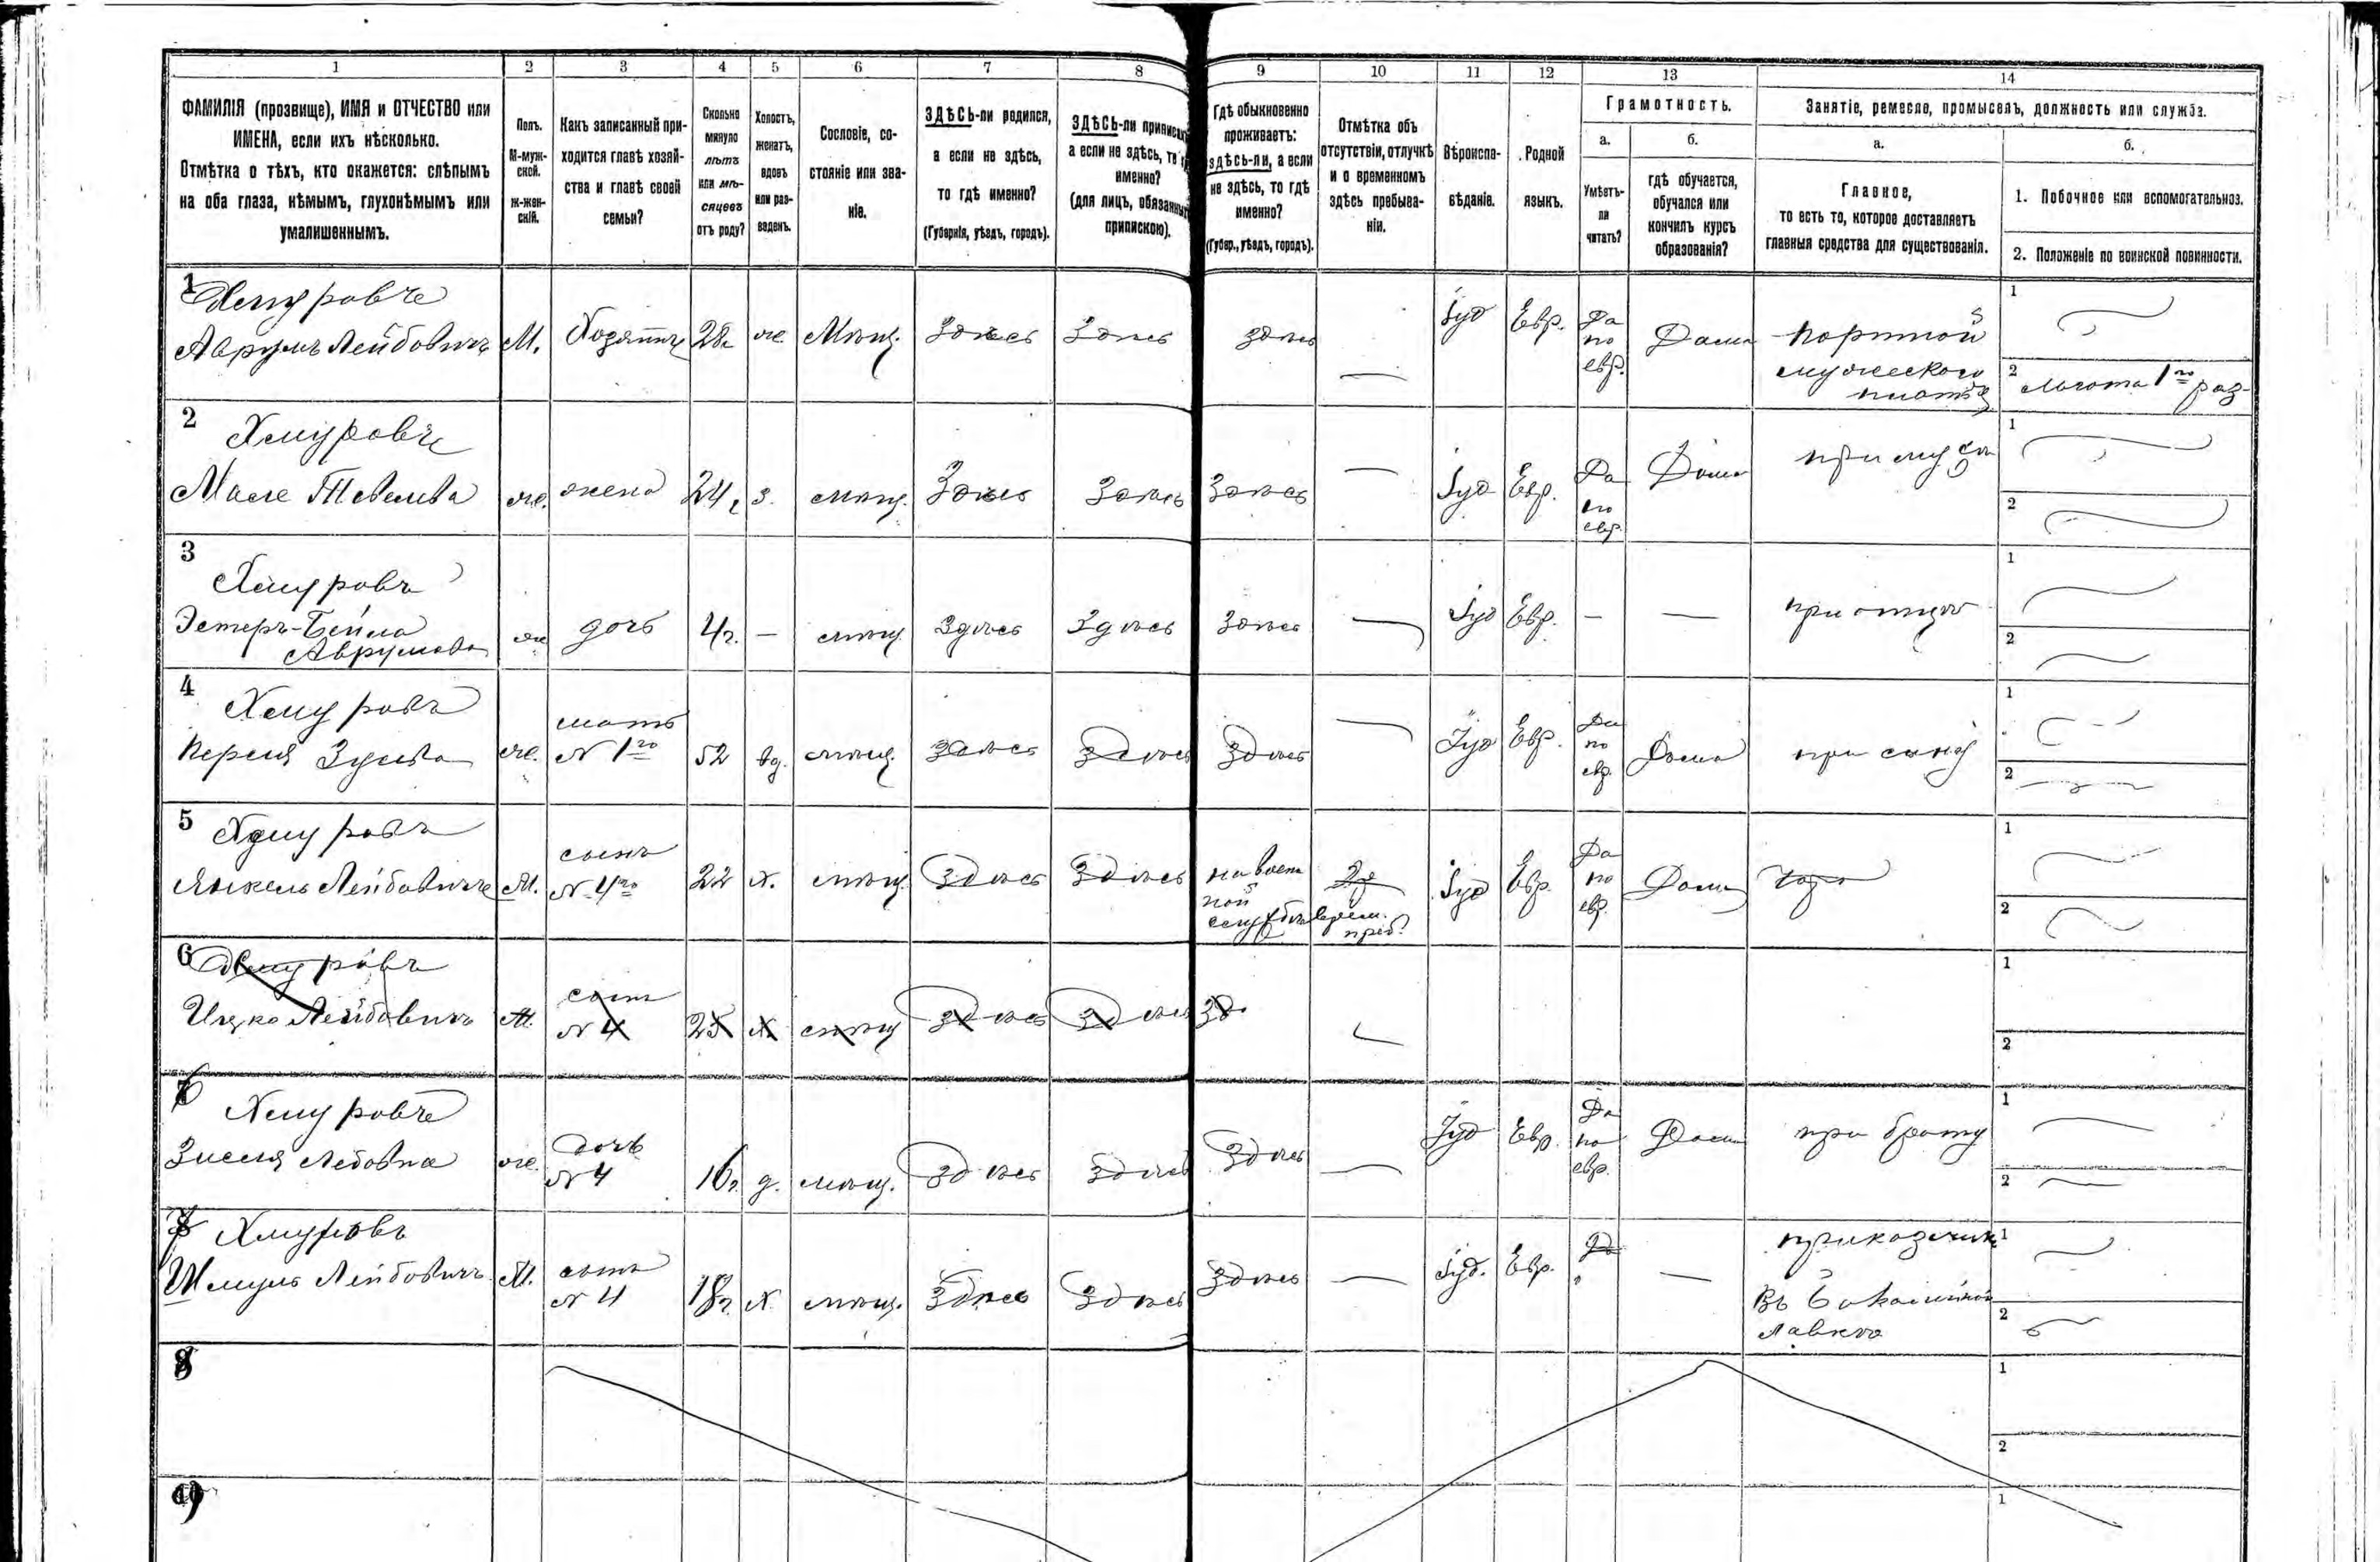 1 2 3 4 5 6 7 8 9 10 11 12 13 14
ФАМИЛІЯ (прозвище), ИМЯ и ОТЧЕСТВО или
ИМЕНА, если ихъ нѣсколько.
Отмѣтка о тѣхъ, кто окажется: слѣпымъ
на оба глаза, нѣмымъ, глухонѣмымъ или
умалишеннымъ.
Полъ.
М-муж-
ской.
Ж-жен-
скій.
Какъ записанный при-
ходится главѣ хозяй-
ства и главѣ своей
семьи?
Сколько
минуло
лѣтъ
или мѣ-
сяцевъ
отъ роду?
Холостъ,
женатъ,
вдовъ
или раз-
веденъ.
Сословіе, со-
стояніе или зва-
ніе.
ЗДѢСЬ-ли родился,
а если не здѣсь,
то гдѣ именно?
(Губернія, уѣздъ, городъ).
ЗДѢСЬ-ли приписанъ
а если не здѣсь, то
именно?
(для лицъ, обязанныхъ
припискою).
Гдѣ обыкновенно
проживаетъ:
здѣсь-ли, а если
не здѣсь, то гдѣ
именно?
(Губер., уѣздъ, городъ).
Отмѣтка объ
отсутствіи, отлучкѣ
и о временномъ
здѣсь пребыва-
ніи.
Вѣроиспо-
вѣданіе.
Родной
языкъ.
Грамотность.
а.
Умѣетъ-
ли
читать?
б.
гдѣ обучается,
обучался или
кончилъ курсъ
образованія?
Занятіе, ремесло, промыселъ, должность или служба.
а.
Главное,
то есть то, которое доставляетъ
главныя средства для существованія.
б.
1. Побочное или вспомогательное.
2. Положеніе по воинской повинности.
1 Хмуровъ
Аврумъ Лейбовичъ М. Хозяинъ 28 ж. Мѣщ. Здѣсь Здѣсь здѣсь — Іуд Евр. Да по евр. Дома Портной мужескаго платья 1
2 льгота 1го раз.
2 Хмуровъ
Мася Тевелева ж. жена 24 з. мѣщ. Здѣсь Здѣсь Здѣсь — Іуд Евр. Да по евр. Дома при мужѣ 1
2
3 Хмуровъ
Эстеръ-Бейла
Аврумова ж дочь 4 г. — мѣщ. Здѣсь Здѣсь Здѣсь — Іуд Евр. — — при отцѣ 1
2
4 Хмуровъ
Перля Зусева ж. мать N 1го 52 вд. мѣщ. Здѣсь Здѣсь Здѣсь — Іуд Евр. Да по евр. Дома при сынѣ 1
2
5 Хмуровъ
Янкель Лейбовичъ М. сынъ N 4го 22 х. мѣщ. Здѣсь Здѣсь на воен ной службѣ врем. преб. Іуд Евр. Да по евр. Дома 1
2
6 Хмуровъ
Ицко Лейбовичъ М. сынъ N 4 25 х. мѣщ Здѣсь Здѣсь Зд 1
2
7 Хмуровъ
Зисля Лебовна ж. дочь N 4 16 д. мѣщ. Здѣсь Здѣсь Здѣсь — Іуд Евр. Да по евр. Дома при брату 1
2
Хмуровъ
Шмуль Лейбовичъ М. сынъ N 4 18 х мѣщ. Здѣсь Здѣсь Здѣсь — Іуд. Евр. Да — приказчикъ 1
Въ бакалейной
лавкѣ 2
8 1
2
1